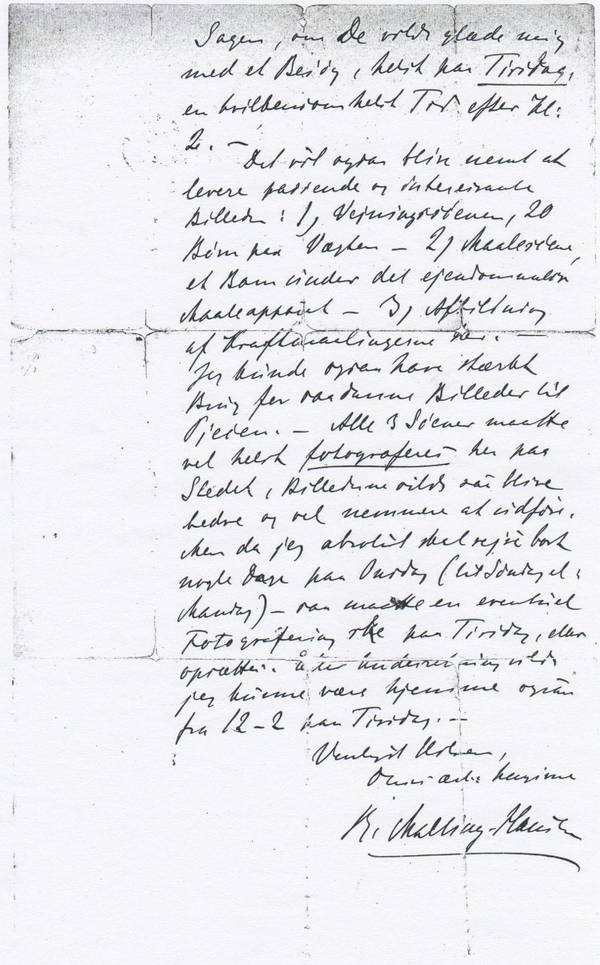 Sagen, om De vilde glæde mig
med et Besøg, helst paa Tirsdag,
en hvilkensomhelst Tid efter Kl:
2. —
Det vil ogsaa blive nemt at
levere passende og interessante
Billeder: 1) Vejningsscenen, 20
Børn paa Vægten — 2) Maalescene,
et Barn under det ejendommelige
Maaleapparat — 3) Afbildning
af Kraftmaalingerne
Jeg kunde ogsaa have stærkt
Brug for saadanne Billeder til
— Alle 3 Scener maatte
vel helst fotograferes her paa
Stedet, Billederne vilde saa blive
bedre og vel nemmere at udføre.
Men da jeg absolut skal rejse bort
nogle Dage paa Onsdag (til Søndag el:
Mandag) — saa maatte en eventuel
Fotografering ske paa Tirsdag, eller
opsættes. vilde
jeg kunne være hjemme ogsaa
fra 12–2 paa Tirsdag. —
Venligst Hilsen,
Deres ærb: hengivne
R. Malling-Hansen